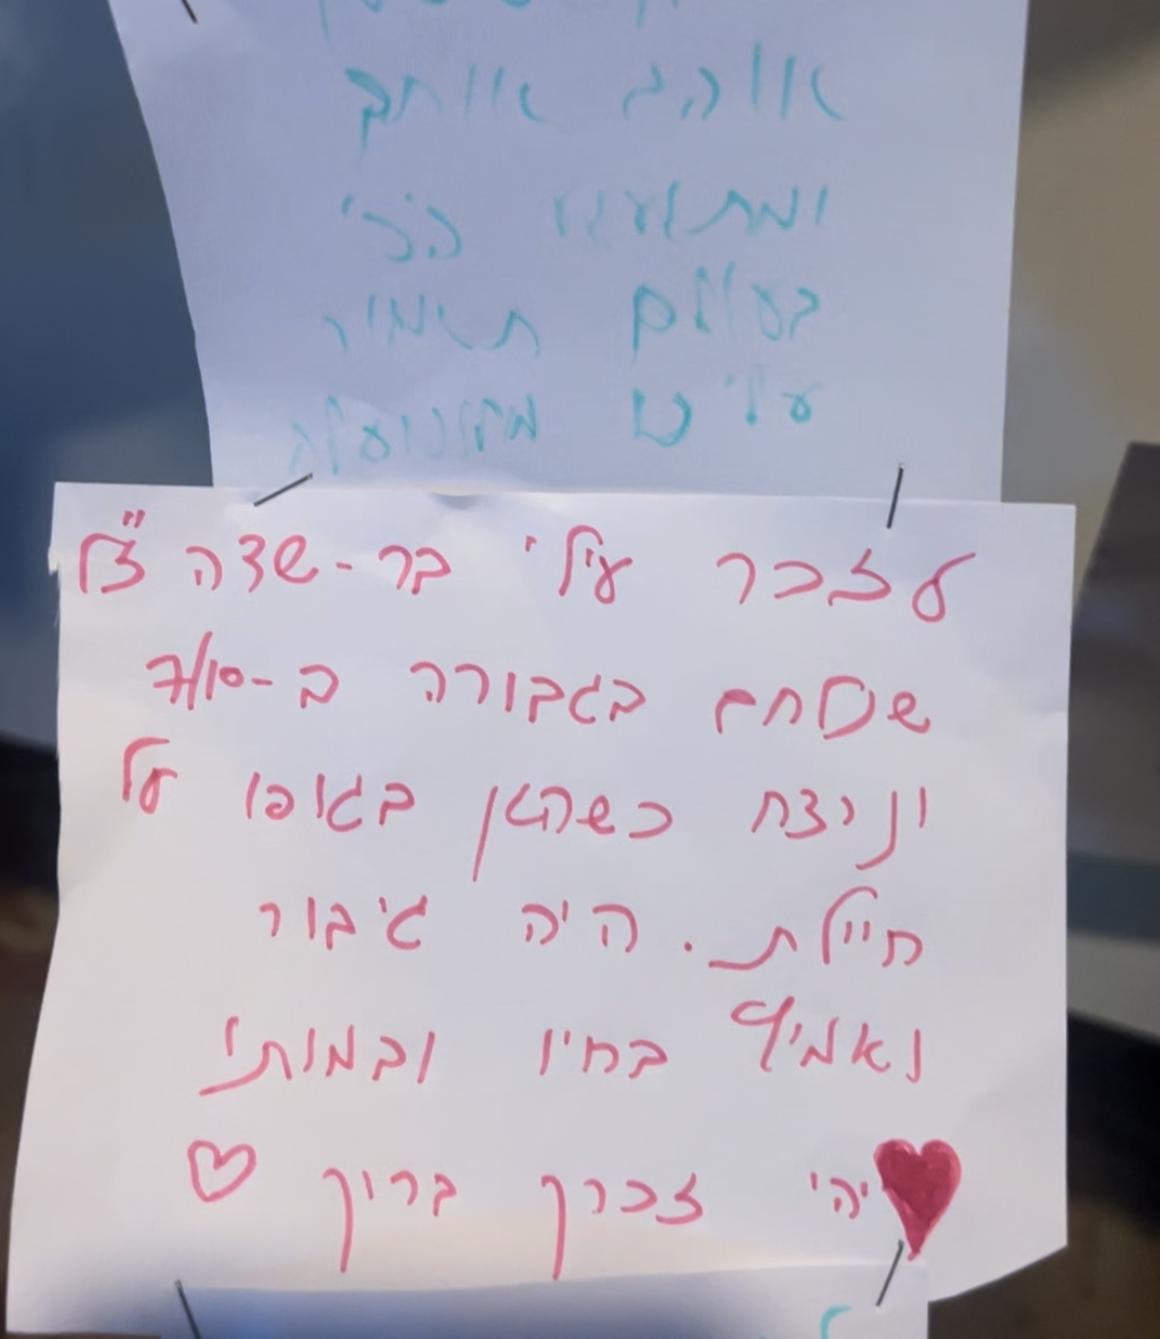 אוהב אותך
ומתגעגע הכי
בעולם תשמור
עלי
לזכר עילי בר-שדה ז"ל
שלחם בגבורה ב-7/10
ונרצח כשהגן בגופו על
חיילת. היה גיבור
ואמיץ בחייו ובמותו
יהי זכרך ברוך